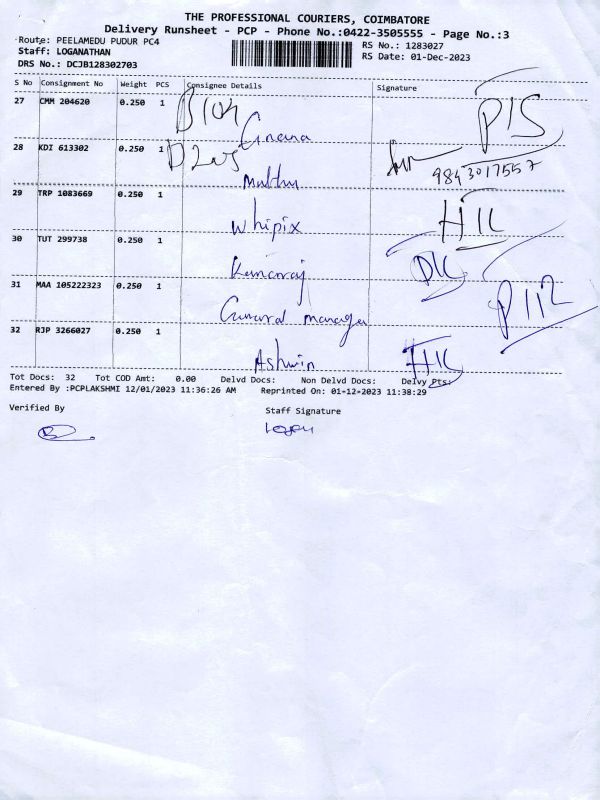 THE PROFESSIONAL COURIERS, COIMBATORE
Delivery Runsheet - PCP - Phone No.:0422-3505555 - Page No.:3
Route: PEELAMEDU PUDUR PC4
RS No.: 1283027
Staff: LOGANATHAN
RS Date: 01-Dec-2023
DRS No.: DCJB128302703
S No Consignment No Weight PCS Consignee Details Signature
27 CMM 204620 0.250 1
P15
28 KDI 613302 0.250 1
9843017557
Muthu
29 TRP 1083669 0.250 1
Whipix H1C
30 TUT 299738 0.250 1
Kumaraj
31 MAA 105222323 0.250 1 P112
manager
32 RJP 3266027 0.250 1
Ashwin H1C
Tot Docs: 32 Tot COD Amt: 0.00 Delvd Docs: Non Delvd Docs: Delvy Pts:
Entered By :PCPLAKSHMI 12/01/2023 11:36:26 AM Reprinted On: 01-12-2023 11:38:29
Verified By
Staff Signature